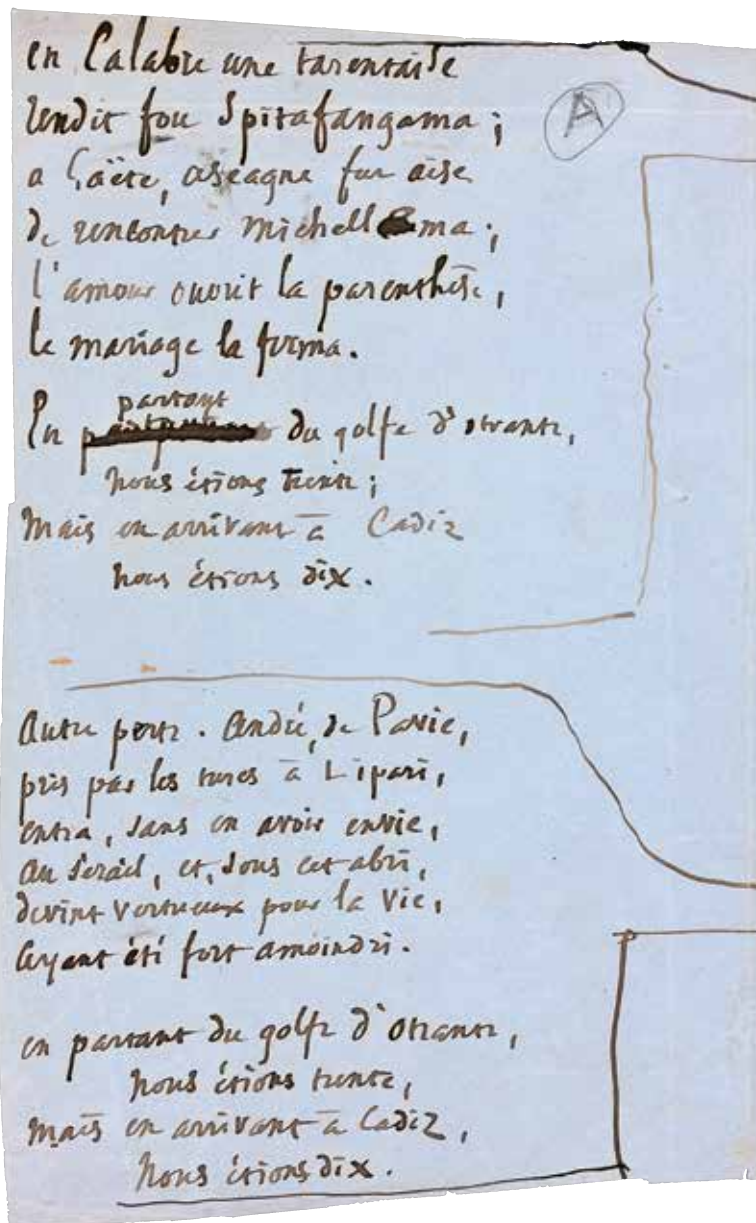 en Calabre une tarentaise
rendit fou Spitafangama ;
A
a Gaëte, ascagne fut aise
de rencontrer Michellema ;
l'amour ouvrit la parenthèse,
le mariage la ferma.
partant
En du golfe d'otrante,
nous étions trente ;
Mais en arrivant à Cadiz
nous étions dix.
Autre perte. André, de Pavie,
pris par les turcs à Lipari,
entra, sans en avoir envie,
au sérail, et, sous cet abri,
devint vertueux pour la vie,
ayant été fort amoindri.
en partant du golfe d'Otrante,
nous étions trente,
mais en arrivant à Cadiz,
nous étions dix.